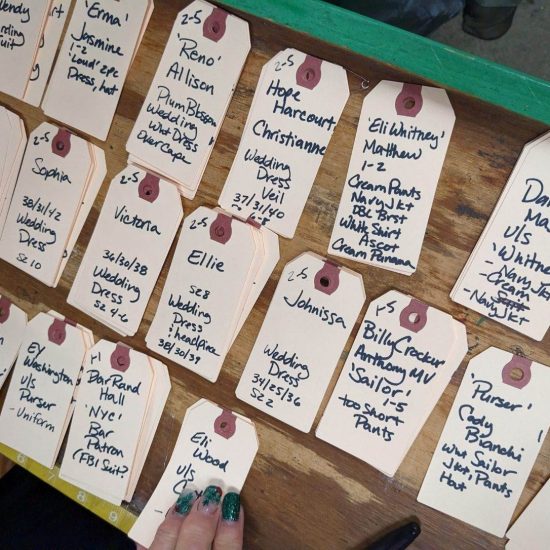 'Erma'
Jasmine
1-2
'Loud' 2pc
Dress, hat
2-5
'Reno'
Allison
Plum Blossom
Wedding
Wht Dress
Over Cape
2-5
Hope
Harcourt
Christianne
Wedding
Dress
Veil
37/31/40
'Eli Whitney'
Matthew
1-2
Cream Pants
Navy Jkt
DBL Brst
White Shirt
Ascot
Cream Panama
u/s
-Navy Jkt
-Cream
-Navy Jkt
Sophia
38/31/42
Wedding
Dress
Sz 10
2-5
Victoria
36/30/38
Wedding
Dress
Sz 4-6
2-5
Ellie
Sz 8
Wedding
Dress
38/30/39
2-5
Johnissa
Wedding
Dress
34/25/36
Sz 2
1-5
Billy Crocker
Anthony MV
'Sailor'
1-5
too Short
Pants
'Purser'
Cody
Bianchi
Wht Sailor
Jkt, Pants
Hat
EY
Washington
u/s
Purser
-Uniform
DarRand
Hall
'NYC'
Bar
Patron
(FBI Suit?
Eli
Wood
u/s